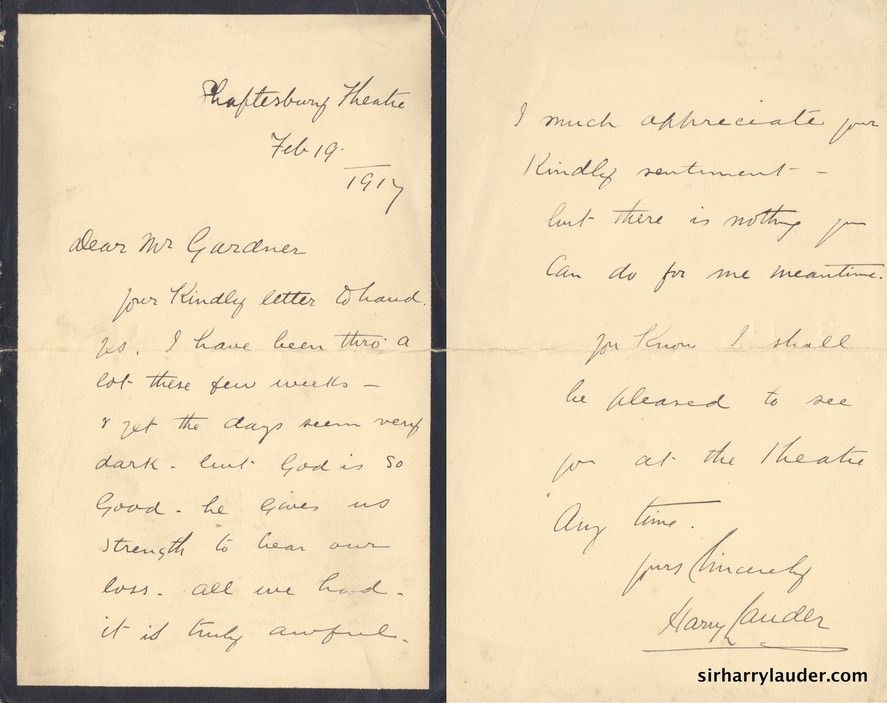 Shaftesbury Theatre
Feb 19.
1917
Dear Mr Gardner
your Kindly letter to hand.
yes. I have been thro a
lot these few weeks –
& yet the days seem very
dark – but God is so
Good – he gives us
strength to bear our
loss – all we had –
it is truly awful –
I much appreciate your
Kindly sentiment –
but there is nothing you
Can do for me meantime.
you Know I shall
be pleased to see
you at the Theatre
Any time.
yours Sincerely
Harry Lauder
sirharrylauder.com